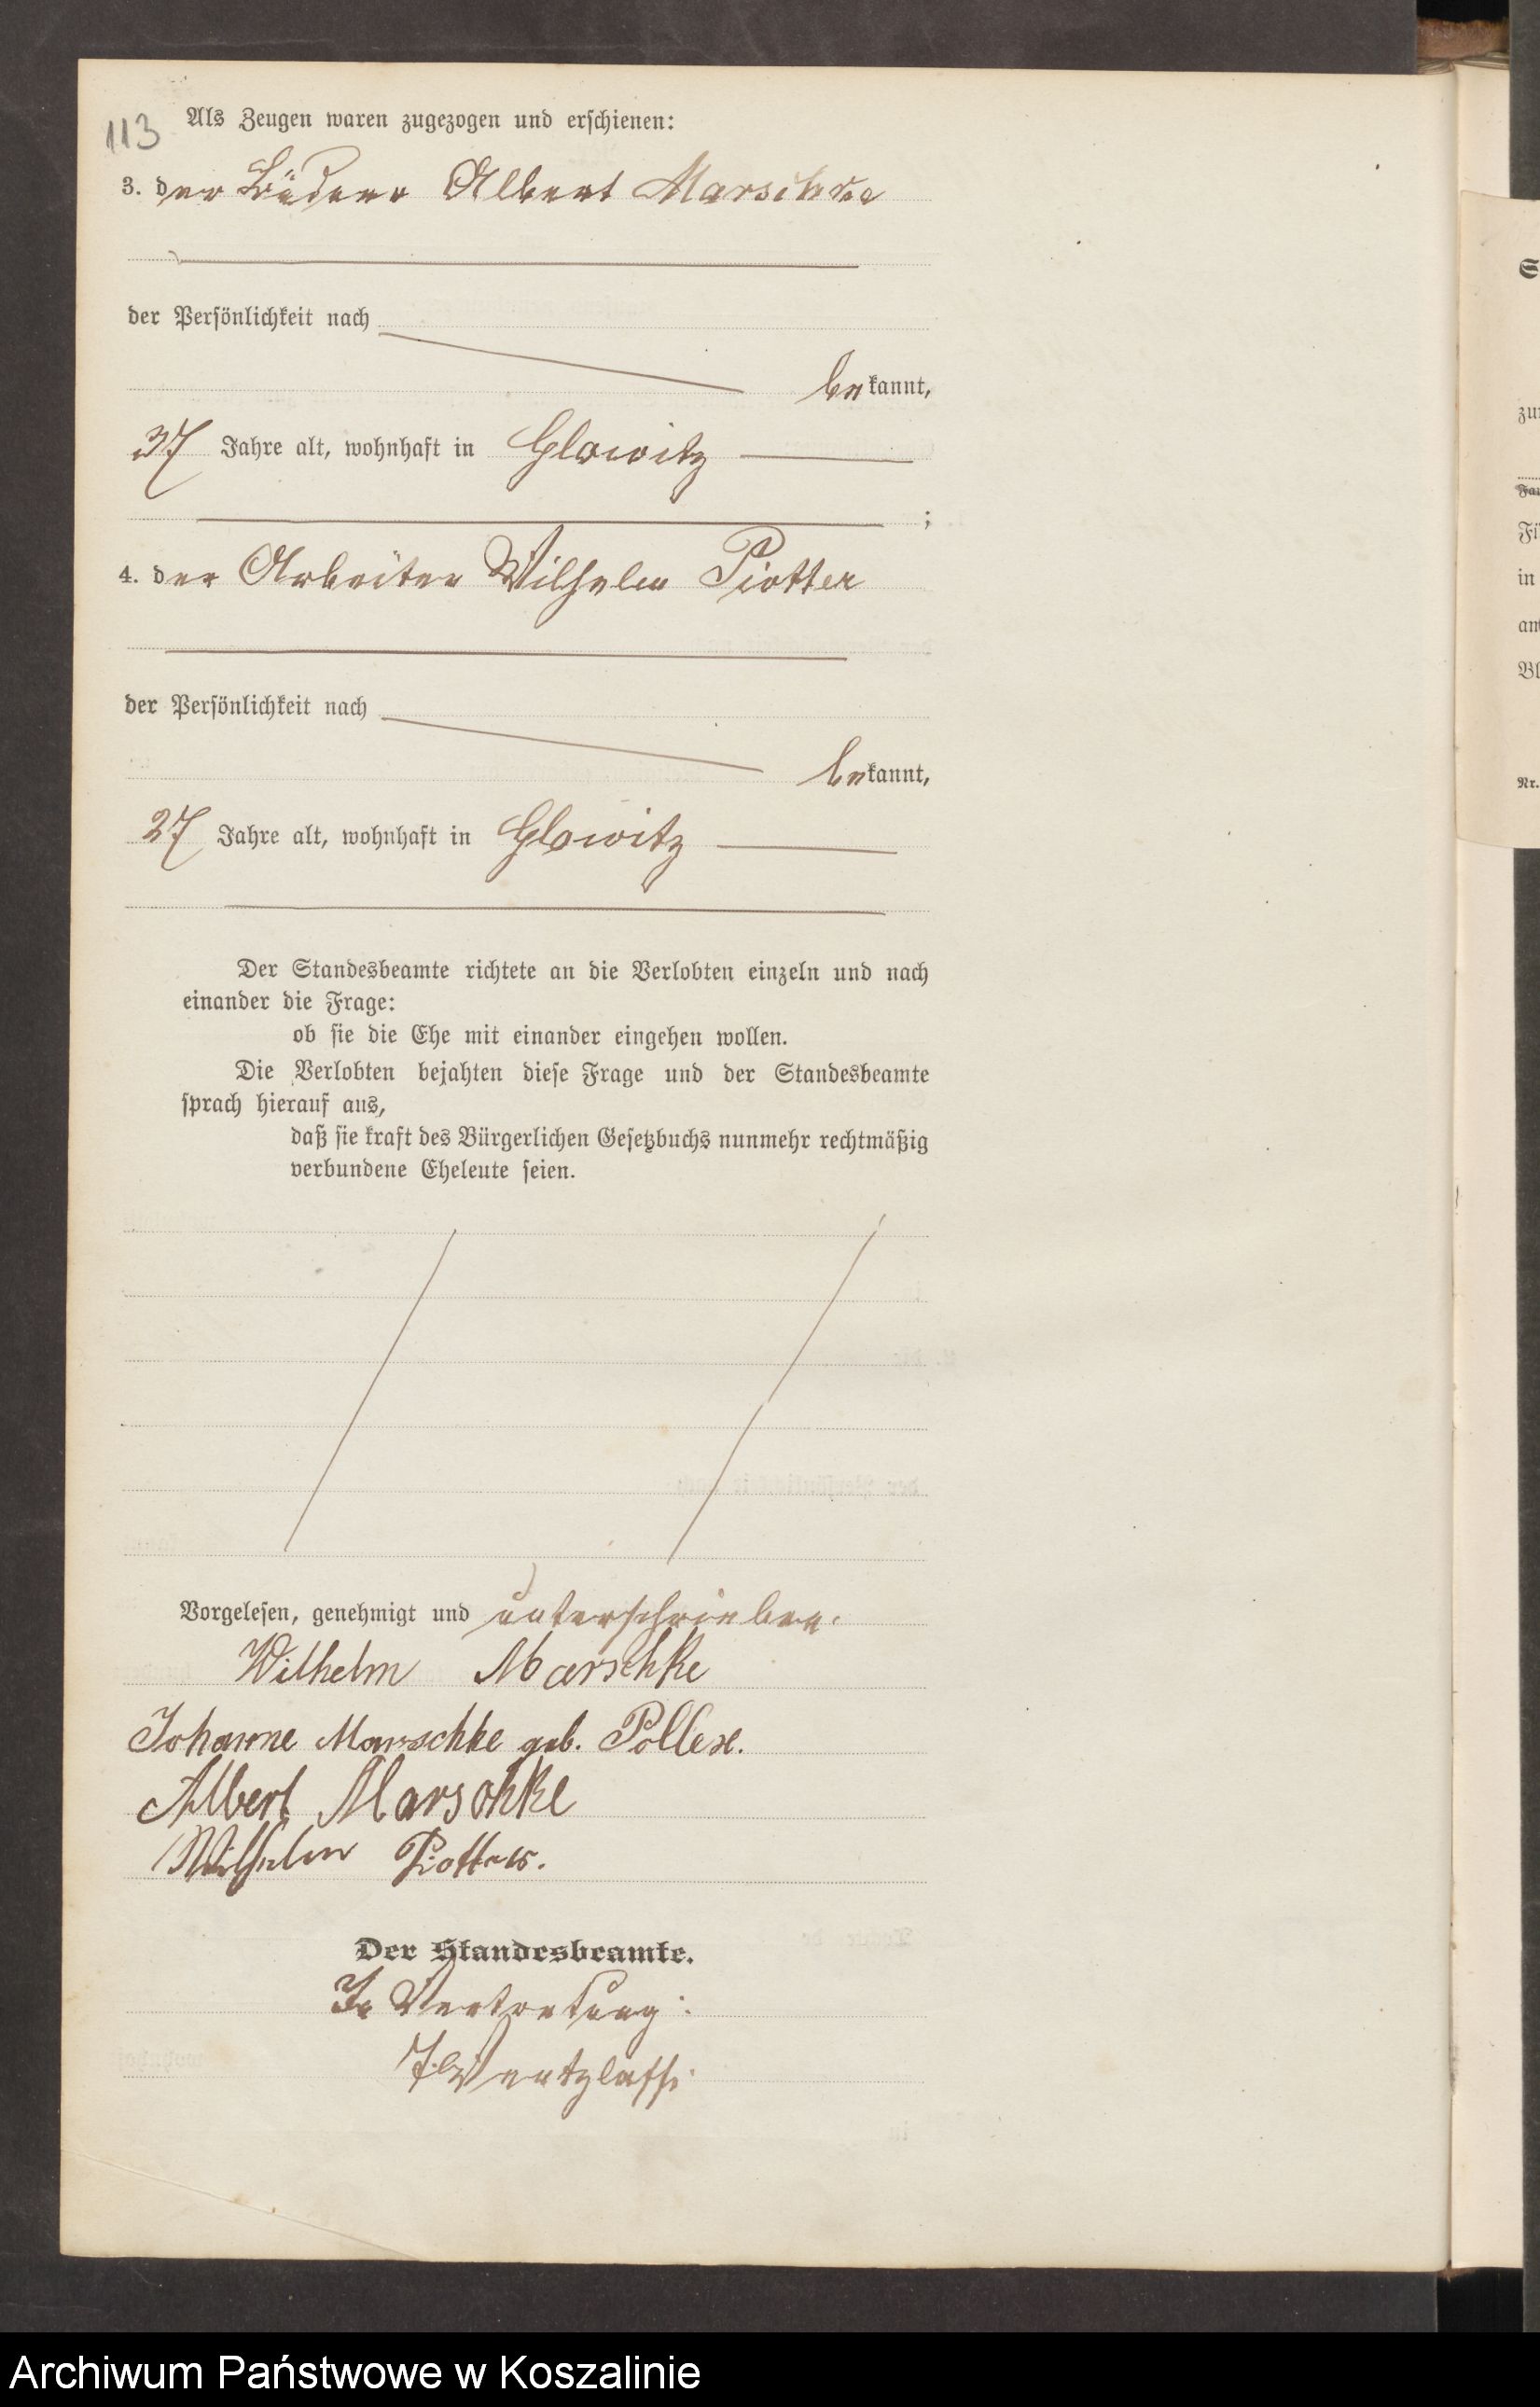 113
Als Zeugen waren zugezogen und erschienen:
3. der Büdner Albert Marschke
der Persönlichkeit nach
bekannt,
37 Jahre alt, wohnhaft in Glowitz
;
4. der Arbeiter Wilhelm Piotter
der Persönlichkeit nach
bekannt,
27 Jahre alt, wohnhaft in Glowitz
Der Standesbeamte richtete an die Verlobten einzeln und nach
einander die Frage:
ob sie die Ehe mit einander eingehen wollen.
Die Verlobten bejahten diese Frage und der Standesbeamte
sprach hierauf aus,
daß sie kraft des Bürgerlichen Gesetzbuchs nunmehr rechtmäßig
verbundene Eheleute seien.
Vorgelesen, genehmigt und unterschrieben.
Wilhelm Marschke
Johanne Marschke geb. Pollex.
Albert Marschke
Wilhelm Piotter.
Der Standesbeamte.
In Vertretung:
Wentzlaff.
Nr.
Archiwum Państwowe w Koszalinie